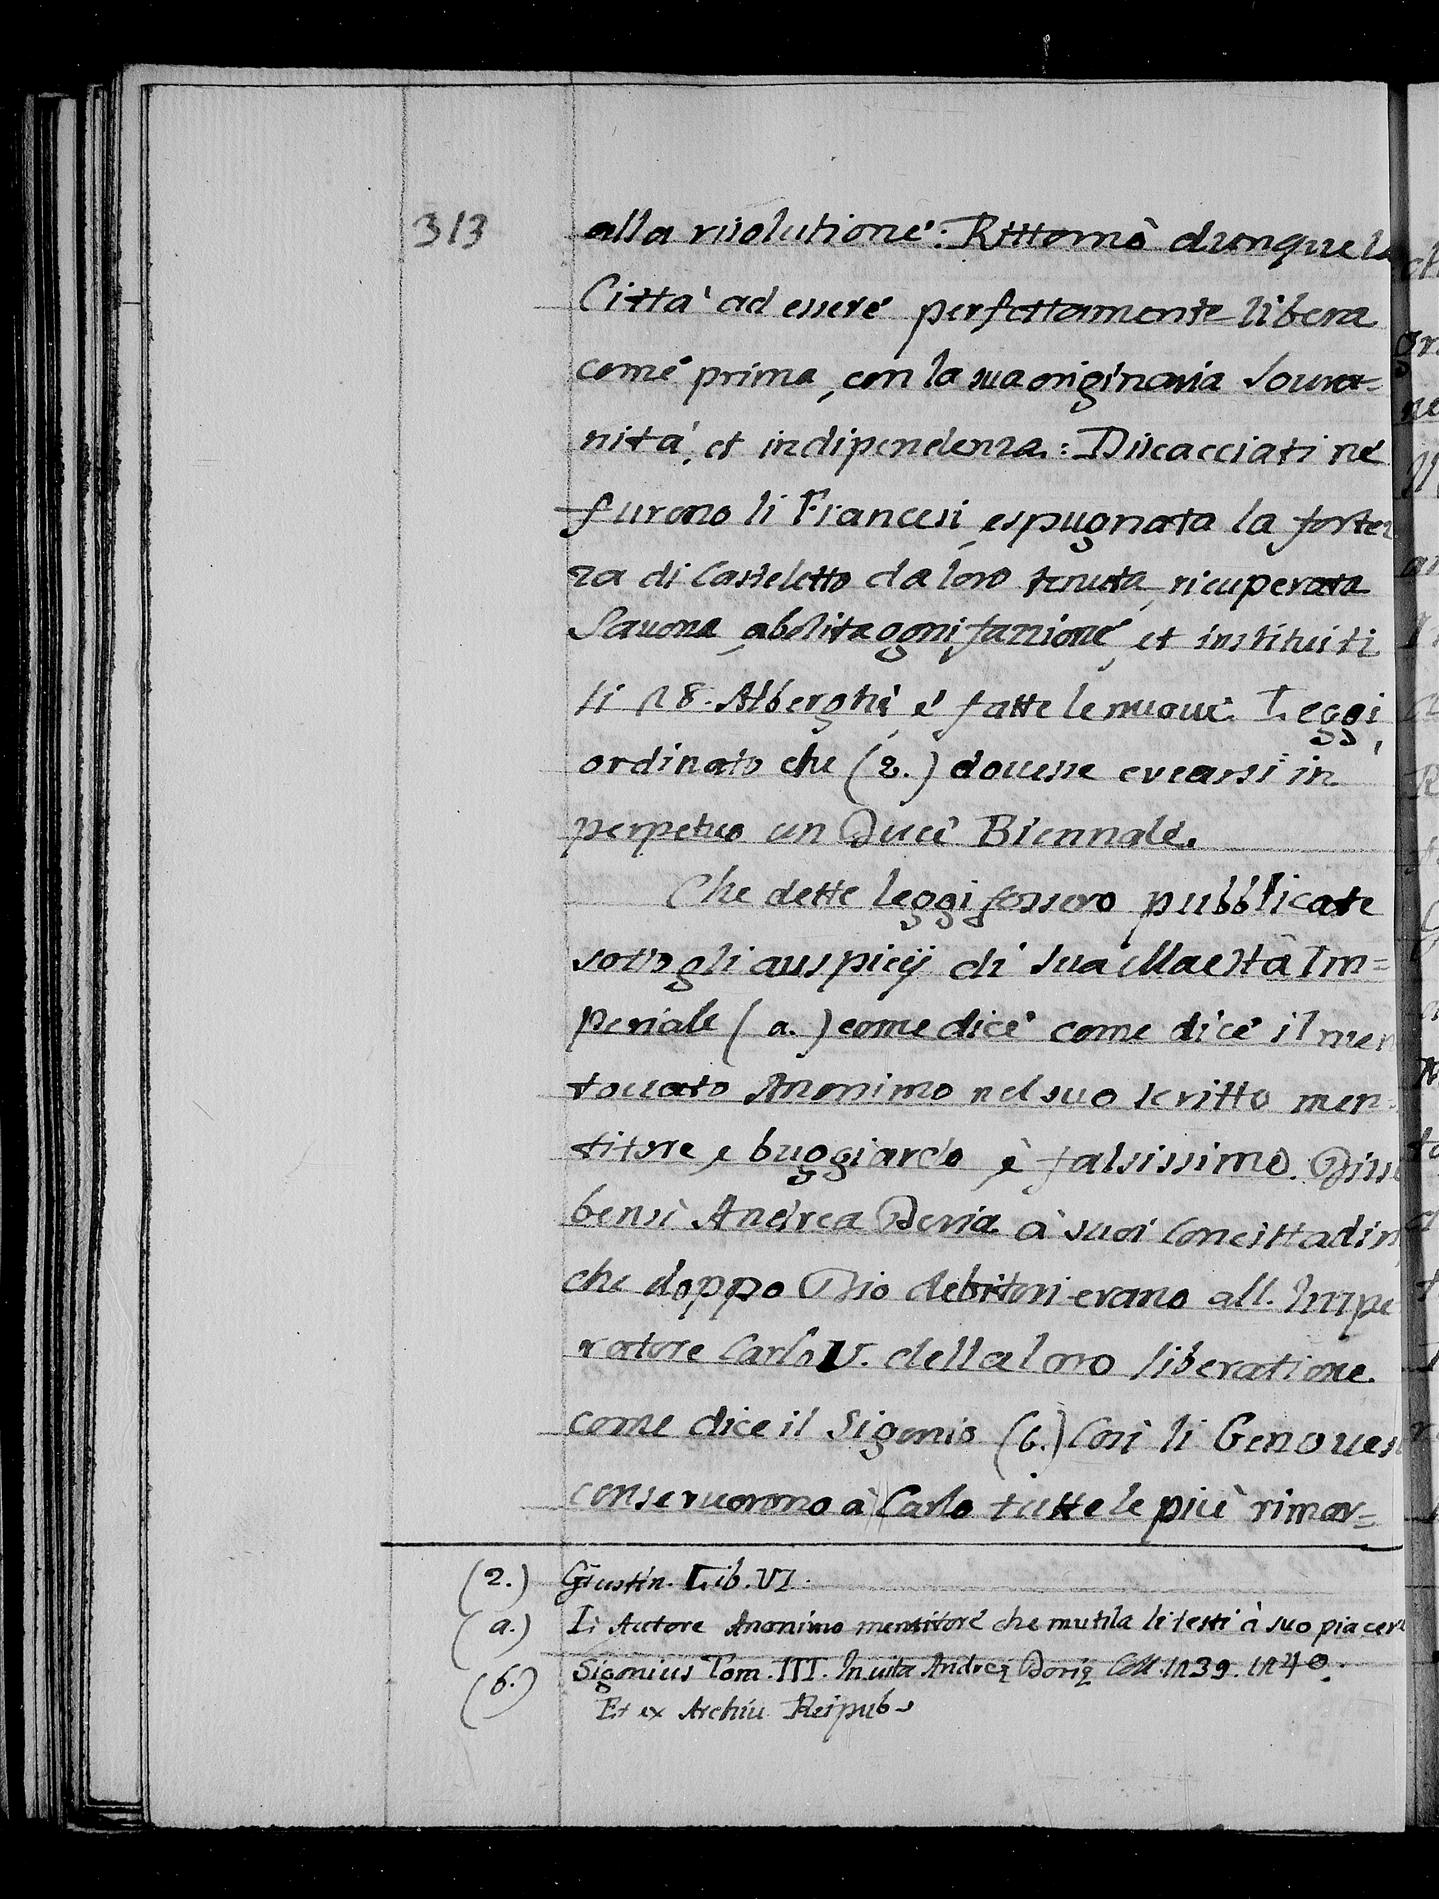 313
alla risolutione: Rittornò dunque la
Città ad essere perfettamente libera
come prima, con la sua originaria Soura=
nità, et indipendenza: Discacciati ne
furono li Francesi, espugnata la fortez
za di Casteletto da loro tenuta, ricuperata
Sauona, abolita ogni fazzione, et instituiti
li 28. Alberghi, e fatte le nuove Leggi,
ordinato che (2.) douesse crearsi in
perpetuo un Duce Biennale.
Che dette leggi fossero pubblicate
sotto gli auspicij di Sua Maestà Im=
periale (a.) come dice come dice il men
touato Anonimo nel suo scritto men-
titore, e buggiardo è falsissimo. Disse
bensì Andrea Doria à suoi Concittadini
che doppo Dio debitori erano all. Impe
ratore Carlo V. della loro liberatione.
come dice il Sigonio (b.) Così li Genouesi
conseruorono à Carlo tutte le più rimar=
(2.) Giustin. Lib. VI.
(a.) Li Autore Anonimo mentitore che mutila li testi à suo piacere
(b.) Sigonius Tom. III. In uita Andreę Dorię Coll. 1239. 1240.
Et ex Archiu. Reipub.